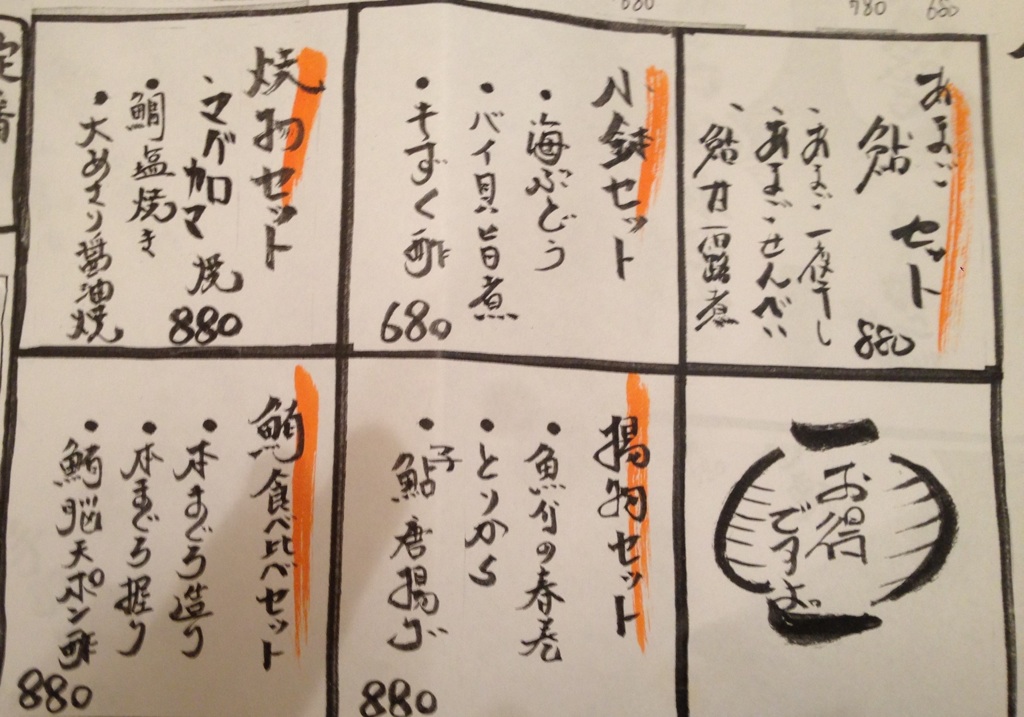 680
780
680
あまご
鮎 セット
・あまご一夜干し
・あまごせんべい
・鮎甘露煮
880
小鉢セット
・海ぶどう
・バイ貝旨煮
・もずく酢
680
焼物セット
・マグロカマ焼
・鯛塩焼き
・大あさり醤油焼
880
お得
ですよ。
揚物セット
・魚介の春巻
・とりから
・子鮎唐揚げ
880
鮪食べ比べセット
・本まぐろ造り
・本まぐろ握り
・鮪脳天ポン酢
880
定番